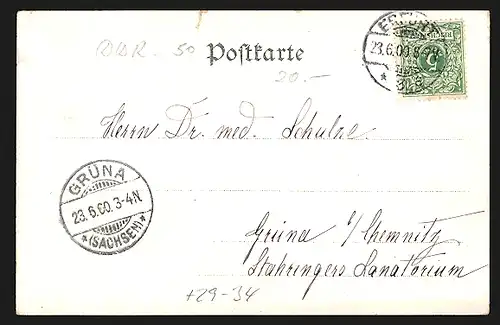 DDR - 50
Postkarte
20.-
ERFURT
23.6.00.8-9V
* 3 *
5
Herrn Dr. med. Schulze
GRÜNA
23.6.00.3-4N
*(SACHSEN)*
Grüna i/Chemnitz
Stahringers Sanatorium
+29-34